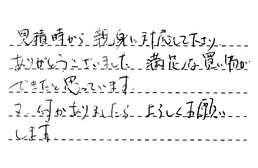 見積時から親身に対応して下さり
ありがとうございました 満足な買い物が
できたと思っています.
又、何かありましたら よろしくお願い
します